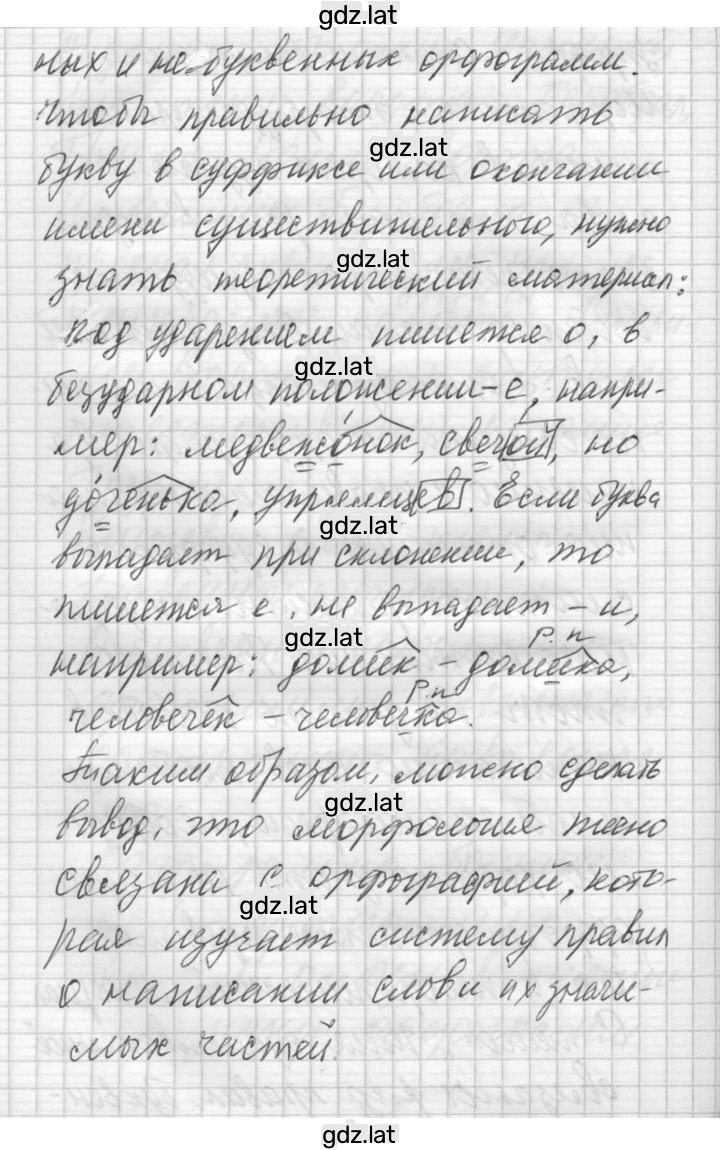 gdz.lat
ных и не-буквенных орфограмм.
Чтобы правильно написать
gdz.lat
букву в суффиксе или окончании
имени существительного, нужно
gdz.lat
знать теоретический материал:
под ударением пишется о, в
gdz.lat
безударном положении – е, напри-
мер: медвежо́нок, свечо́й, но
до́ченька, упрямцев. Если буква
gdz.lat
выпадает при склонении, то
пишется е, не выпадает – и,
gdz.lat
Р. п
например: домик – домика,
Р. п
человечек – человечка.
Таким образом, можно сделать
gdz.lat
вывод, что морфология тесно
связана с орфографией, кото-
gdz.lat
рая изучает систему правил
о написании слов и их значи-
мых частей.
gdz.lat